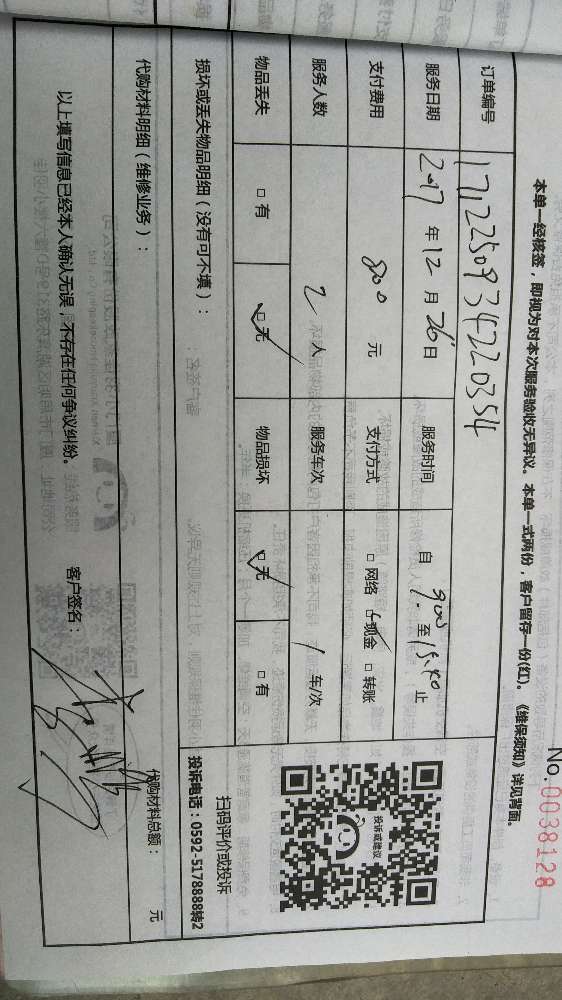 No.0038128
本单一经核签，即视为对本次服务验收无异议。本单一式两份，客户留存一份(红)。《维保须知》详见背面。
订单编号 1712250934220354
服务日期 2017年12月26日 服务时间 自 9:00 至 15:40 止
支付费用 800 元 支付方式 □ 网络 □ 现金 □ 转账
服务人数 2 人 服务车次 1 车/次
物品丢失 □ 有 □ 无 物品损坏 □ 无 □ 有
损坏或丢失物品明细（没有可不填）：
投诉或建议
扫码评价或投诉
投诉电话：0592-5178888转2
代购材料明细（维修业务）：
代购材料总额： 元
以上填写信息已经本人确认无误，不存在任何争议纠纷。 客户签名：